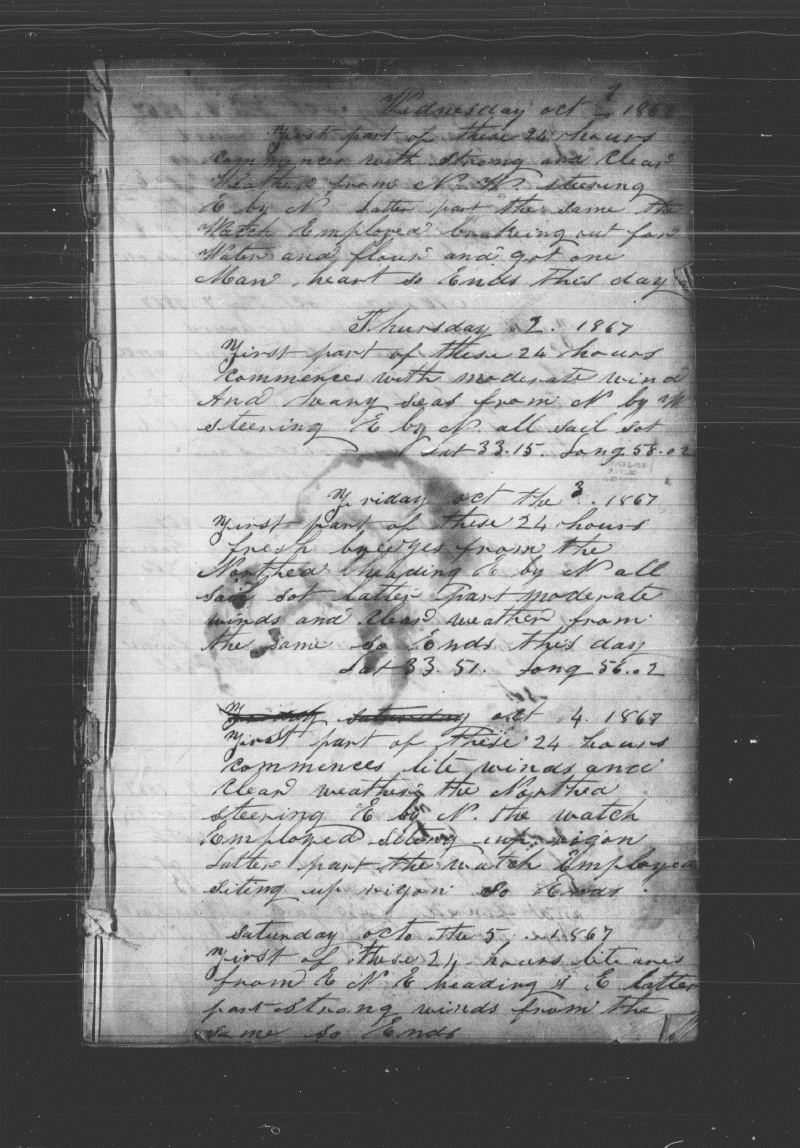 Wednesday oct 1 1867
First part of these 24 hours
commences with strong and Clear
Weather from N. W. steering
E by N. Latter part the same the
Watch Employed breakeing out for
Water and flour and got one
Man heart so Ends this day
Thursday 2. 1867
First part of these 24 hours
Commences with moderate wind
And heavy seas from N by W
steering E by N. all sail sot
Lat 33.15. Long 58.02
Friday oct the 3. 1867
First part of these 24 hours
fresh breezes from the
Northed heading E by N all
sail sot latter part moderate
winds and Clear weather from
the same so Ends this day
Lat 33.51. Long 56.02
saturday oct 4. 1867
First part of these 24 hours
commences lite winds and
Clear weather the Northed
steering E by N. the watch
Employed up rigon
Latter part the watch Employed
siting up rigon so Ends
Saturday octo the 5. 1867
First of these 24 hours lite ares
from E N E heading s E latter
part strong winds from the
same so Ends